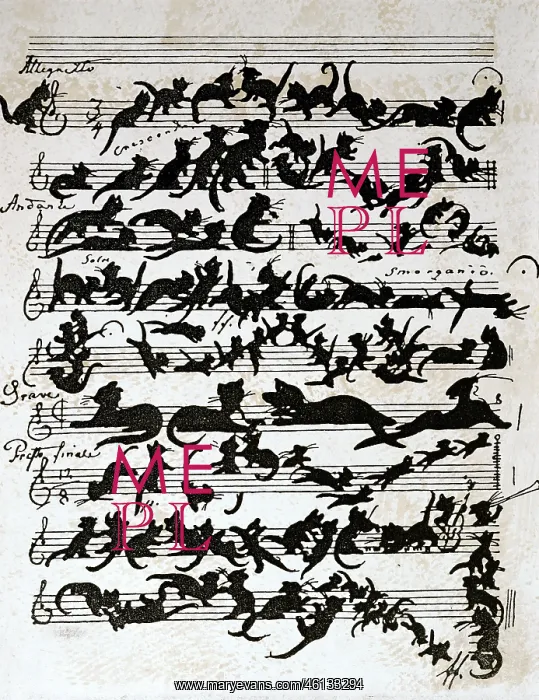 Allegretto
3
4
Crescendo
ME
PL
Andante
Solo
Smorganio.
ff.
Grave
Presto finale
12
8
ME
PL
ff.
www.maryevans.com/46133294